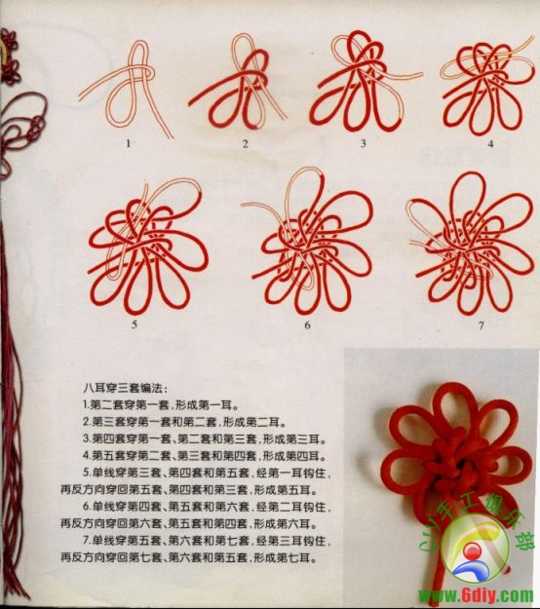 1
2
3
4
5
6
7
八耳穿三套编法:
1.第二套穿第一套,形成第一耳。
2.第三套穿第一套和第二套,形成第二耳。
3.第四套穿第一套、第二套和第三套,形成第三耳。
4.第五套穿第二套、第三套和第四套,形成第四耳。
5.单线穿第三套、第四套和第五套,经第一耳钩住,
再反方向穿回第五套、第四套和第三套,形成第五耳。
6.单线穿第四套、第五套和第六套,经第二耳钩住,
再反方向穿回第六套、第五套和第四套,形成第六耳。
7.单线穿第五套、第六套和第七套,经第三耳钩住,
再反方向穿回第七套、第六套和第五套,形成第七耳。
手工俱乐部
www.6diy.com